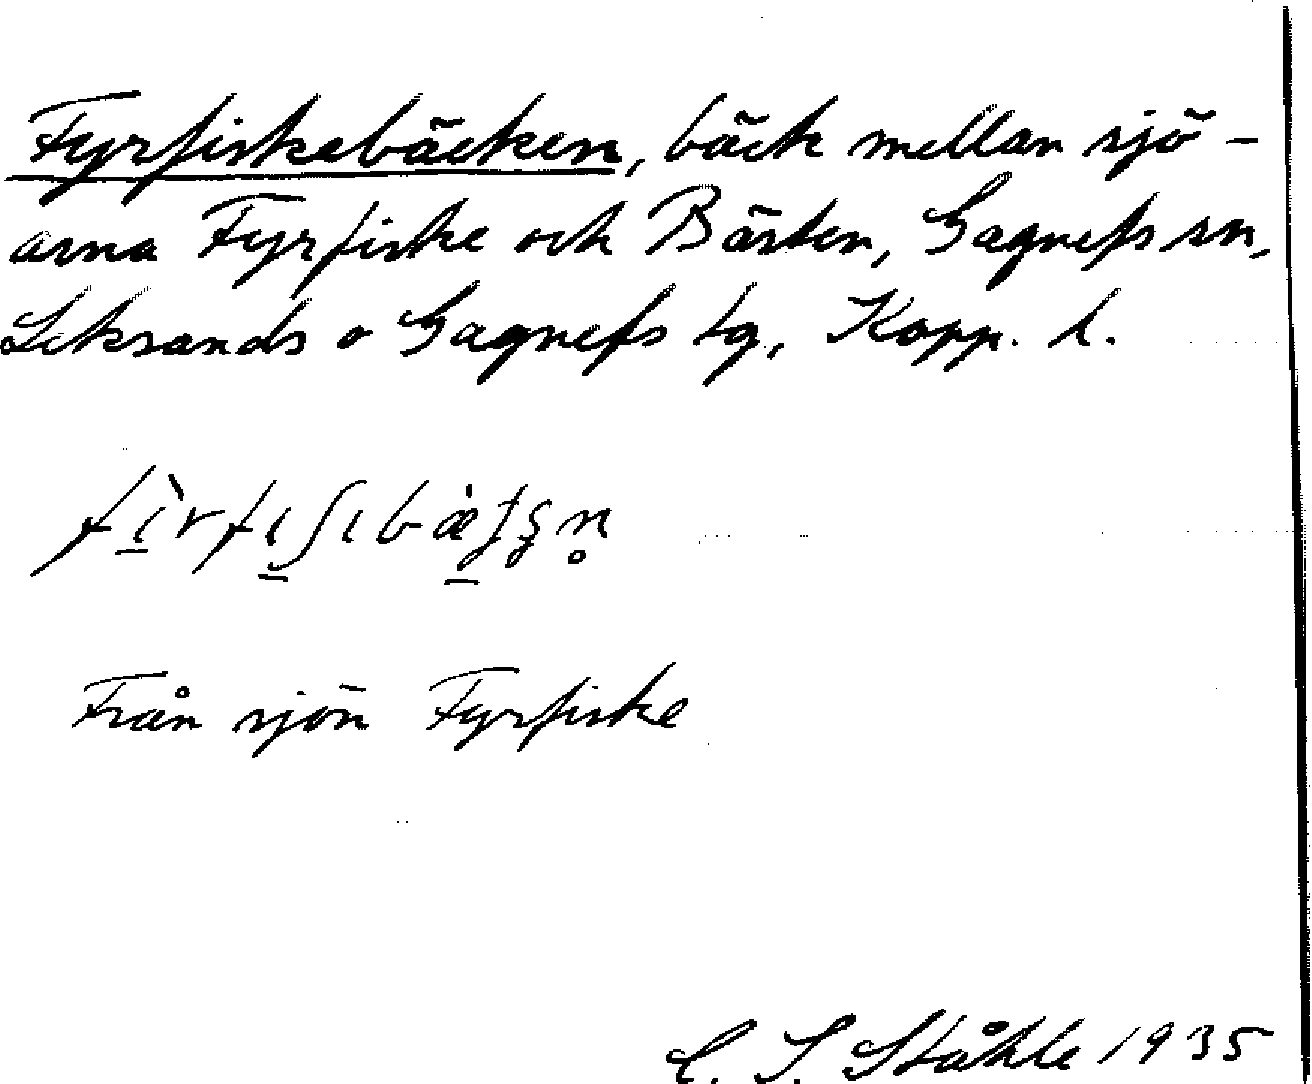 Fyrfiskebäcken, bäck mellan sjö-
arna Fyrfiske och Bästen, Gagnefs sn,
Leksands o Gagnefs tg, Kopp. l.
Från sjön Fyrfiske
C. I. Ståhle 1935